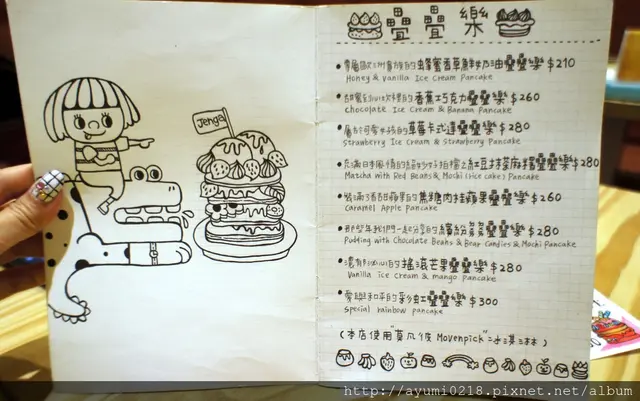 Jenga
疊疊樂
專屬歐洲貴族的蜂蜜香草鮮奶油疊疊樂 $210
Honey & Vanilla Ice Cream Pancake
香蕉巧克力疊疊樂 $260
chocolate Ice Cream & Banana Pancake
草莓卡式達疊疊樂 $280
Strawberry Ice Cream & Strawberry Pancake
紅豆抹茶麻糬疊疊樂 $280
Matcha with Red Beans & Mochi (rice cake) Pancake
焦糖肉桂蘋果疊疊樂 $260
Caramel Apple Pancake
那些年我們一起分享的繽紛疊疊樂 $280
Pudding with Chocolate Beans & Bear Candies & Mochi Pancake
搖滾芒果疊疊樂 $280
Vanilla ice cream & mango pancake
愛與和平的彩虹疊疊樂 $300
Special rainbow pancake
(本店使用"莫凡彼 Movenpick"冰淇淋)
http://ayumi0218.pixnet.net/album